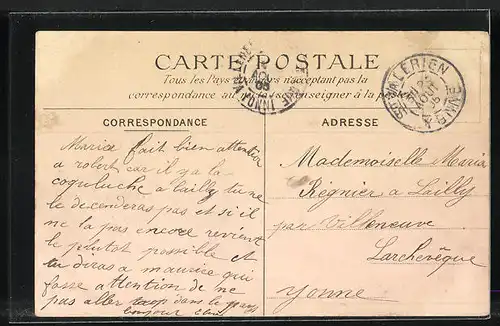 CARTE POSTALE
Tous les Pays étrangers n'acceptent pas la
correspondance au se renseigner à la poste
ST VALÉRIEN
YONNE
CORRESPONDANCE
ADRESSE
fait bien attention
a robert car il y a la
coqueluche a Lailly tu ne
le decenderas pas et si il
ne la pas encore revient
le plutot possible et
tu diras a maurice qui
fasse attention de ne
pas aller dans le pays
bonjour
Mademoiselle Maria
Régnier a Lailly
par Villeneuve
Larchevêque
Yonne